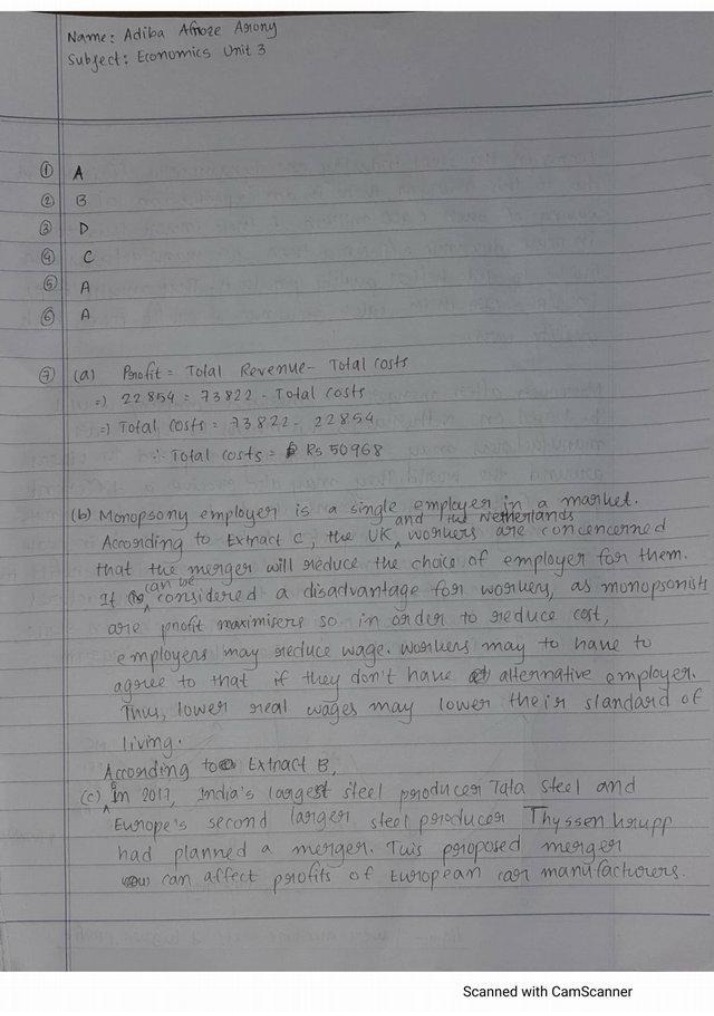 Name: Adiba Afroze Arony
Subject: Economics Unit 3
① A
② B
③ D
④ C
⑤ A
⑥ A
⑦ (a) Profit = Total Revenue - Total costs
=) 22854 = 73822 - Total costs
=) Total costs = 73822 - 22854
∴ Total costs = Rs 50968
(b) Monopsony employer is a single employer in a market.
According to Extract C, the UK and the Netherlands workers are concencerned
that the merger will reduce the choice of employer for them.
It can be considered a disadvantage for workers, as monopsonists
are profit maximisers so in order to reduce cost,
employers may reduce wage. Workers may to have to
agree to that if they don't have alternative employer.
Thus, lower real wages may lower their standard of
living.
According to Extract B,
(c) In 2017, India's largest steel producer Tata Steel and
Europe's second larger steel producer Thyssenkrupp
had planned a merger. This proposed merger
can affect profits of European car manufacturers.
Scanned with CamScanner